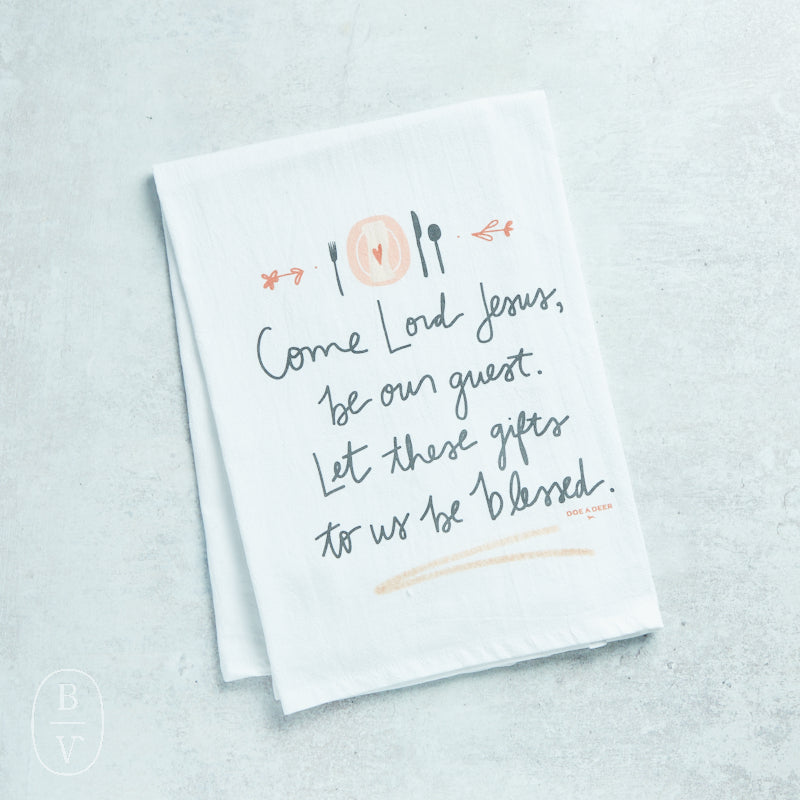 Come Lord Jesus,
be our guest.
Let these gifts
to us be blessed.
DOE A DEER
B
V